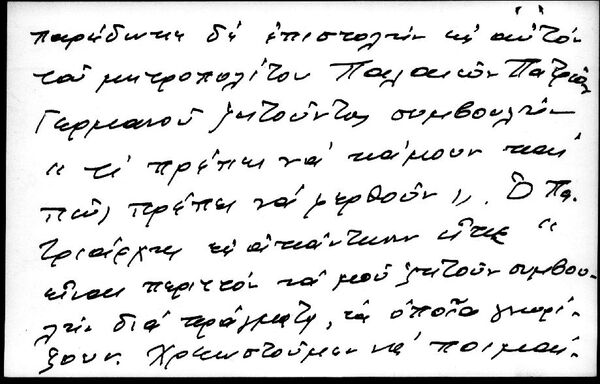 παρέδωκε δέ ἐπιστολήν εἰς αὐτόν
τοῦ μητροπολίτου Παλαιῶν Πατρῶν
Γερμανοῦ ζητοῦντος συμβουλήν
"τί πρέπει νά κάμουν καί
πῶς πρέπει νά φερθοῦν". Ὁ Πα-
τριάρχης εἰς ἀπάντησιν εἶπε "
εἶναι περιττόν νά μοῦ ζητοῦν συμβου-
λήν διά πράγματα, τά ὁποῖα γνωρί-
ζουν. Χρεωστοῦμεν νά ποιμαί-